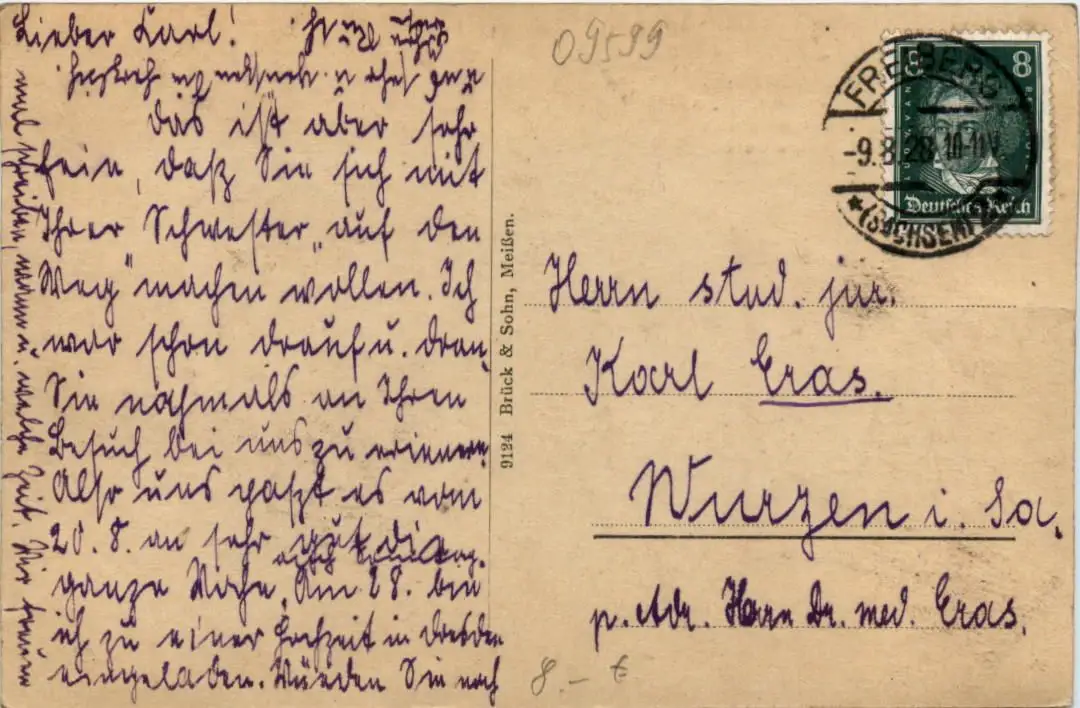 Lieber Karl!
das ist aber sehr
fein, daß Sie sich mit
Ihrer Schwester „auf den
Weg" machen wollen. Ich
war schon drauf u. dran,
Sie nochmals an Ihren
Besuch bei uns zu erinnern.
Also uns paszt es vom
20.8. an sehr gut die
auch
ganze Woche. Am 28. bin
ich zu einer Hochzeit in Dresden
eingeladen. Würden Sie noch
mal schreiben, wann u. welche Zeit. Wir freuen
09599
8
FREIBERG
-9.8.28.10-11V.
*(SACHSEN)
Deutsches Reich
9124 Brück & Sohn, Meißen.
Herrn stud. jur.
Karl Eras.
Wurzen i. Sa.
p. Adr. Herrn Dr. med. Eras.
8.- €